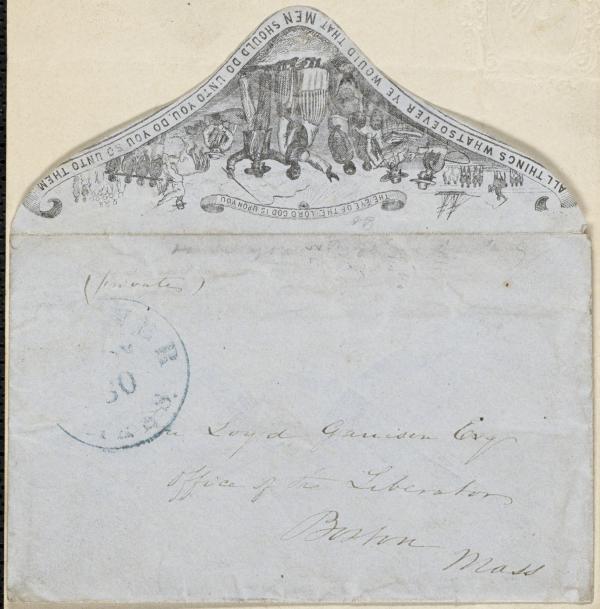 ALL THINGS WHATSOEVER YE WOULD THAT MEN SHOULD DO UNTO YOU, DO YOU SO UNTO THEM
THE EYE OF THE LORD GOD IS UPON YOU
(private)
30
MASS.
Loyd Garrison Esq
Office of the Liberator
Boston
Mass